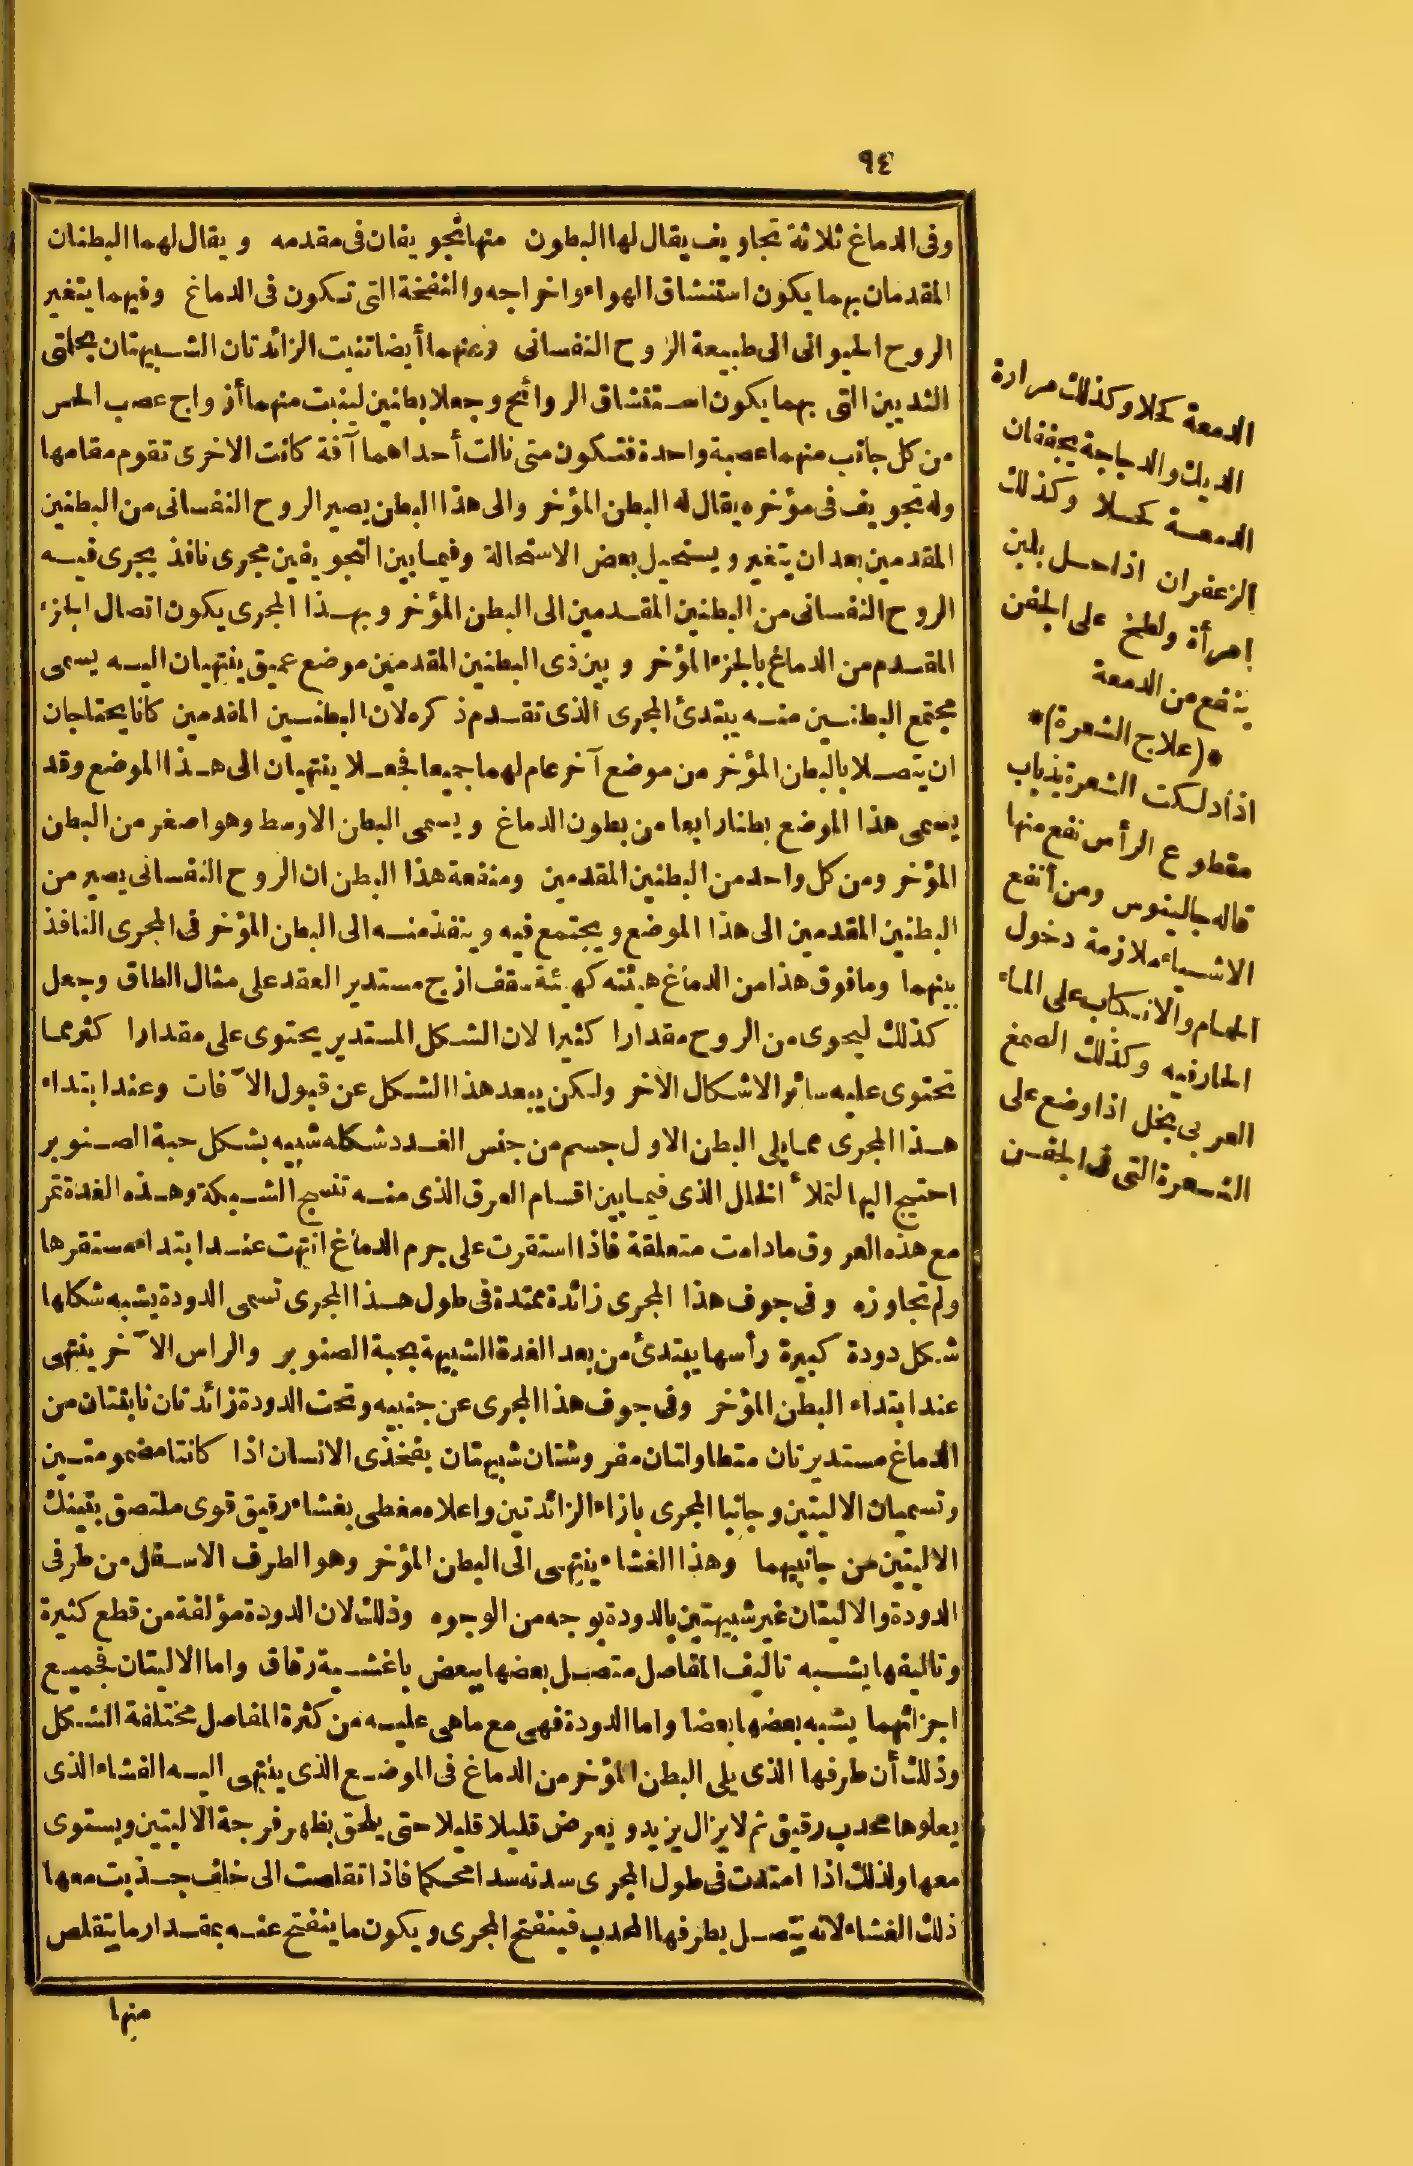 ٩٤
وفى الدماغ ثلاثة تجاويف يقال لها البطون منها تجويفان فى مقدمه ويقال لهما البطنان
المقدمان بهما يكون استنشاق الهواء واخراجه والنفخة التى تكون فى الدماغ وفيهما يتغير
الروح الحيوانى الى طبيعة الروح النفسانى ومنهما أيضا تنبت الزائدتان الشبيهتان بحلمتى
الثديين التى بهما يكون استنشاق الروائح وجعلا بطنين لينبت منهما أزواج عصب الحس
من كل جانب منهما عصبة واحدة فتكون متى نالت أحداهما آفة كانت الاخرى تقوم مقامها
وله تجويف فى مؤخره يقال له البطن المؤخر والى هذا البطن يصير الروح النفسانى من البطنين
المقدمين بعد ان يتغير ويستحيل بعض الاستحالة وفيما بين التجويفين مجرى نافذ يجرى فيه
الروح النفسانى من البطنين المقدمين الى البطن المؤخر وبهذا المجرى يكون اتصال الجزء
المقدم من الدماغ بالجزء المؤخر وبين ذى البطنين المقدمين موضع عميق ينتهيان اليه يسمى
مجتمع البطنين منه يبتدئ المجرى الذى تقدم ذكره لان البطنين المقدمين كانا يحتاجان
ان يتصلا بالبطن المؤخر من موضع آخر عام لهما جميعا فجعلا ينتهيان الى هذا الموضع وقد
يسمى هذا الموضع بطنا رابعا من بطون الدماغ ويسمى البطن الاوسط وهو اصغر من البطن
المؤخر ومن كل واحد من البطنين المقدمين ومنفعة هذا البطن ان الروح النفسانى يصير من
البطنين المقدمين الى هذا الموضع ويجتمع فيه وينفذ منه الى البطن المؤخر فى المجرى النافذ
بينهما وما فوق هذا من الدماغ هيئته كهيئة سقف ازج مستدير العقد على مثال الطاق وجعل
كذلك ليحوى من الروح مقدارا كثيرا لان الشكل المستدير يحتوى على مقدار اكثر مما
تحتوى عليه سائر الاشكال الأخر ولكن يبعد هذا الشكل عن قبول الآفات وعند ابتداء
هذا المجرى مما يلى البطن الاول جسم من جنس الغدد شكله شبيه بشكل حبة الصنوبر
احتيج اليها لتملأ الخلل الذى فيما بين اقسام العرق الذى منه تنسج الشبكة وهذه الغدة تمر
مع هذه العروق مادامت متعلقة فاذا استقرت على جرم الدماغ انتهت عند ابتداء مستقرها
ولم تجاوزه وفى جوف هذا المجرى زائدة ممتدة فى طول هذا المجرى تسمى الدودة يشبه شكلها
شكل دودة كبيرة رأسها يبتدئ من بعد الغدة الشبيهة بحبة الصنوبر والراس الآخر ينتهى
عند ابتداء البطن المؤخر وفى جوف هذا المجرى عن جنبيه وتحت الدودة زائدتان نابتتان من
الدماغ مستديرتان متطاولتان مفروشتان شبيهتان بفخذى الانسان اذا كانتا مضمومتين
وتسميان الاليتين وجانبا المجرى بازاء الزائدتين واعلاه مغطى بغشاء رقيق قوى ملتصق بتينك
الاليتين من جانبيهما وهذا الغشاء ينتهى الى البطن المؤخر وهو الطرف الاسفل من طرفى
الدودة والاليتان غير شبيهتين بالدودة بوجه من الوجوه وذلك لان الدودة مؤلفة من قطع كثيرة
وتاليفها يشبه تاليف المفاصل متصل بعضها ببعض باغشية رقاق واما الاليتان فجميع
اجزائهما يشبه بعضها بعضا واما الدودة فهى مع ماهى عليه من كثرة المفاصل مختلفة الشكل
وذلك أن طرفها الذى يلى البطن المؤخر من الدماغ فى الموضع الذى ينتهى اليه الغشاء الذى
يعلوها محدب رقيق ثم لا يزال يزيد ويعرض قليلا قليلا حتى يلحق بظهر فرجة الاليتين ويستوى
معها ولذلك اذا امتدت فى طول المجرى سدته سدا محكما فاذا تقلصت الى خلف جذبت معها
ذلك الغشاء لانه يتصل بطرفها المحدب فينفتح المجرى ويكون ما ينفتح عنه بمقدار ما يتقلص
منها
الدمعة كحلا وكذلك مرارة
الديك والدجاجة يجففان
الدمعة كحلا وكذلك
الزعفران اذا حل بلبن
امرأة ولطخ على الجفن
ينفع من الدمعة
*(علاج الشعرة)*
اذا دلكت الشعرة بذباب
مقطوع الرأس نفع منها
قاله جالينوس ومن أنفع
الاشياء ملازمة دخول
الحمام والانكباب على الماء
الحار فيه وكذلك الصمغ
العربى بخل اذا وضع على
الشعرة التى فى الجفن